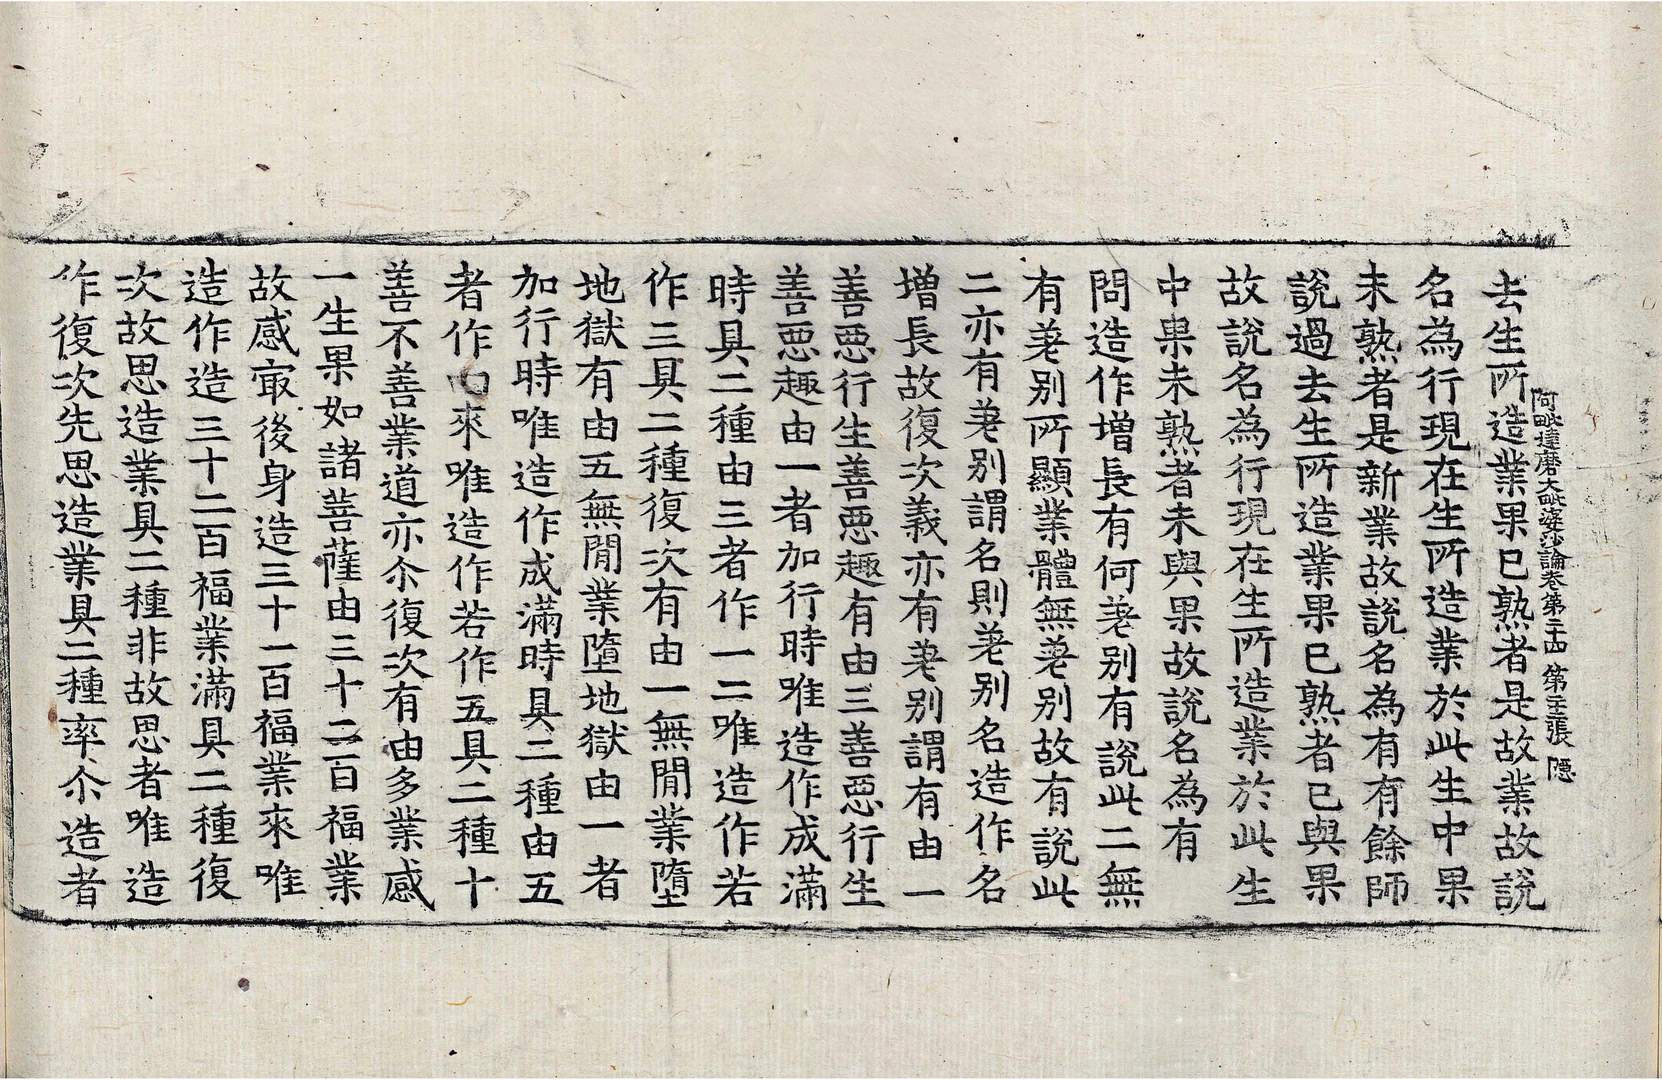 阿毗達磨大毗婆沙論卷第二十四 第二十張 隱
去生所造業果已熟者是故業故說
名為行現在生所造業於此生中果
未熟者是新業故說名為有有餘師
說過去生所造業果已熟者已與果
故說名為行現在生所造業於此生
中果未熟者未與果故說名為有
問造作增長有何差別有說此二無
有差別所顯業體無差別故有說此
二亦有差別謂名則差別名造作名
增長故復次義亦有差別謂有由一
善惡行生善惡趣有由三善惡行生
善惡趣由一者加行時唯造作成滿
時具二種由三者作一二唯造作若
作三具二種復次有由一無閒業墮
地獄有由五無閒業墮地獄由一者
加行時唯造作成滿時具二種由五
者作四來唯造作若作五具二種十
善不善業道亦尒復次有由多業感
一生果如諸菩薩由三十二百福業
故感㝡後身造三十一百福業來唯
造作造三十二百福業滿具二種復
次故思造業具二種非故思者唯造
作復次先思造業具二種率尒造者